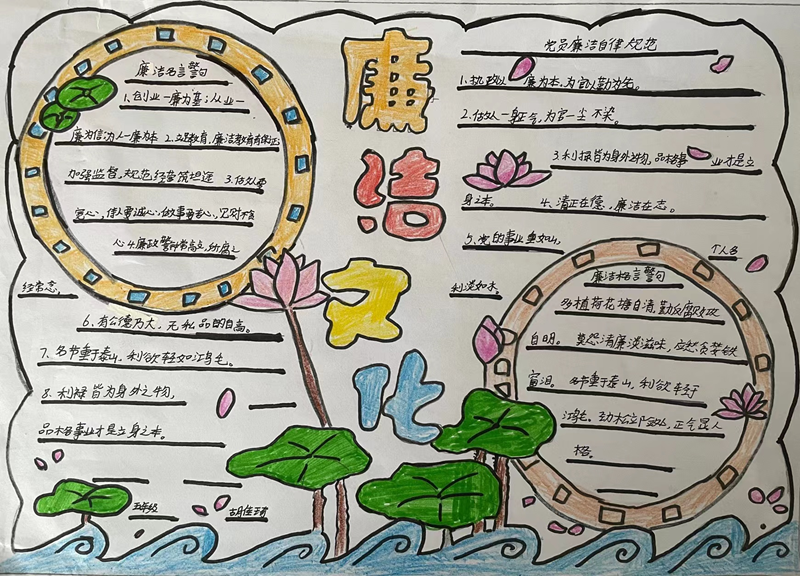 廉洁文化
廉洁名言警句
1、创业一廉为基;从业一
廉为信;为人一廉为本 2、立足教育,廉洁教育有保证
加强监督,规范经营筑坦途 3、
4、廉政警钟常高立,
经常念,
6、有公德乃大,无私品自高。
7、名节重于泰山,利欲轻如鸿毛。
8、利禄皆为身外之物,
品格事业才是立身之本。
五年级
党员廉洁自律规范
1、执政以廉为本,为官以勤为先。
2、做人一身正气,为官一尘不染。
3、利禄皆为身外之物,品格事业才是立
身之本。 4、清正在德,廉洁在志。
5、党的事业重如山,个人名
利淡如水。
廉洁格言警句
多植荷花塘自清,勤反腐败政
自明。莫怨清廉淡滋味,应愁贪梦铁
窗泪。名节重于泰山,利欲轻于
鸿毛。劲松立险处,正气显人
格。